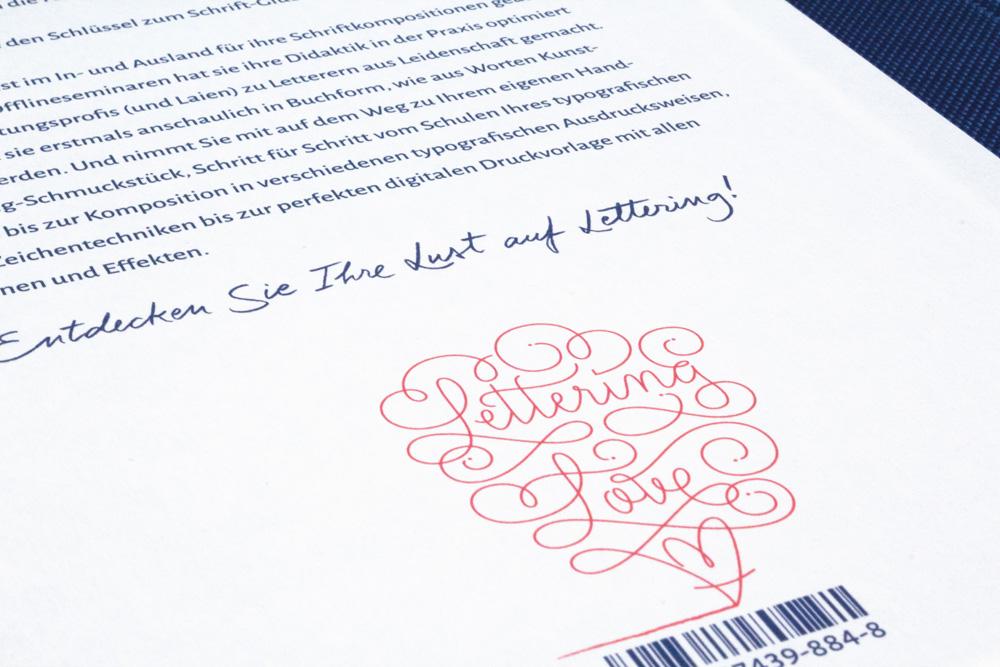 den Schlüssel zum Schrift-
im In- und Ausland für ihre Schriftkompositionen
hat sie ihre Didaktik in der Praxis optimiert
(und Laien) zu Letterern aus Leidenschaft gemacht.
sie erstmals anschaulich in Buchform, wie aus Worten Kunst-
Und nimmt Sie mit auf dem Weg zu Ihrem eigenen Hand-
g-Schmuckstück, Schritt für Schritt vom Schulen Ihres typografischen
bis zur Komposition in verschiedenen typografischen Ausdrucksweisen,
Zeichentechniken bis zur perfekten digitalen Druckvorlage mit allen
nen und Effekten.
Entdecken Sie Ihre Lust auf Lettering!
Lettering
Love
7439-884-8